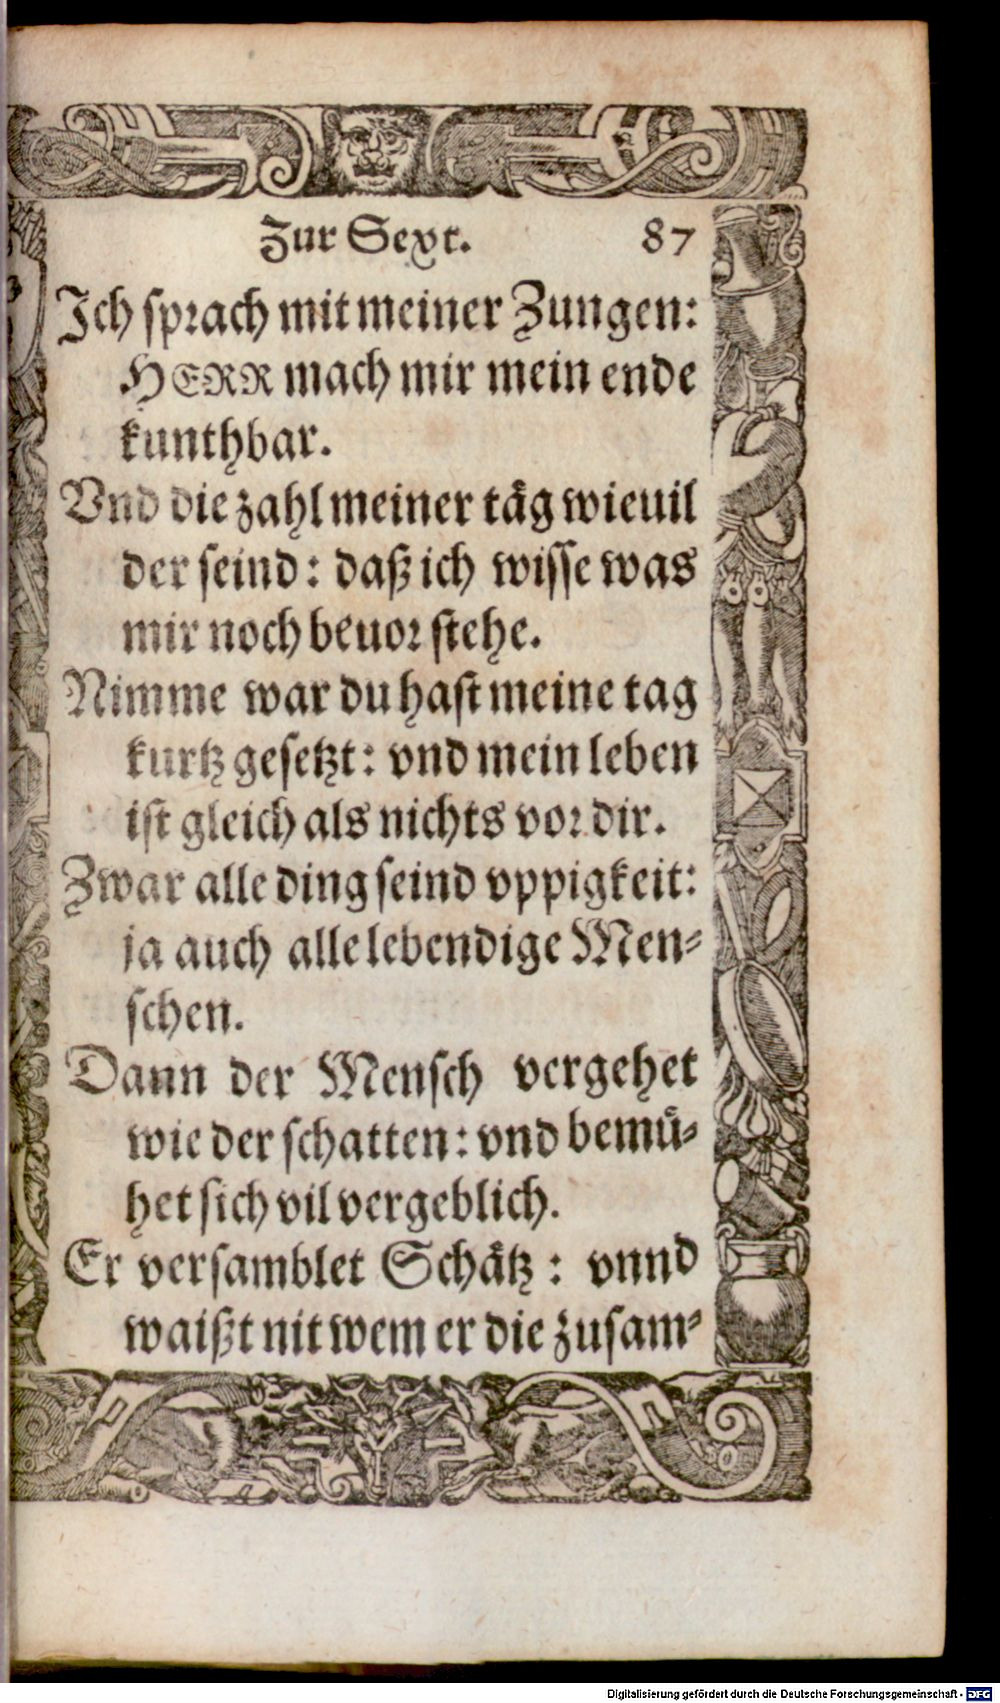 Zur Sext. 87
Ich sprach mit meiner Zungen:
HERR mach mir mein ende
kunthbar.
Vnd die zahl meiner täg wieuil
der seind: daß ich wisse was
mir noch beuor stehe.
Nimme war du hast meine tag
kurtz gesetzt: vnd mein leben
ist gleich als nichts vor dir.
Zwar alle ding seind vppigkeit:
ja auch alle lebendige Men-
schen.
Dann der Mensch vergehet
wie der schatten: vnd bemü-
het sich vil vergeblich.
Er versamblet Schätz: vnnd
waißt nit wem er die zusam-
Digitalisierung gefördert durch die Deutsche Forschungsgemeinschaft - DFG